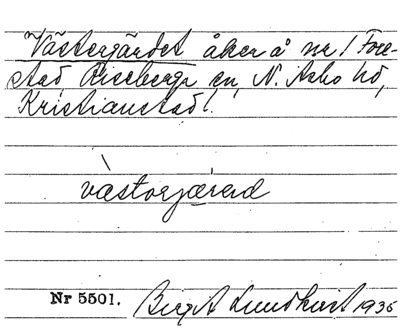 Västergärdet åker å nr 1 Fore-
stad Riseberga sn, N. Åsbo hd,
Kristianstad l.
västorjærəd
Nr 5501. Birgit Lundkvist 1936